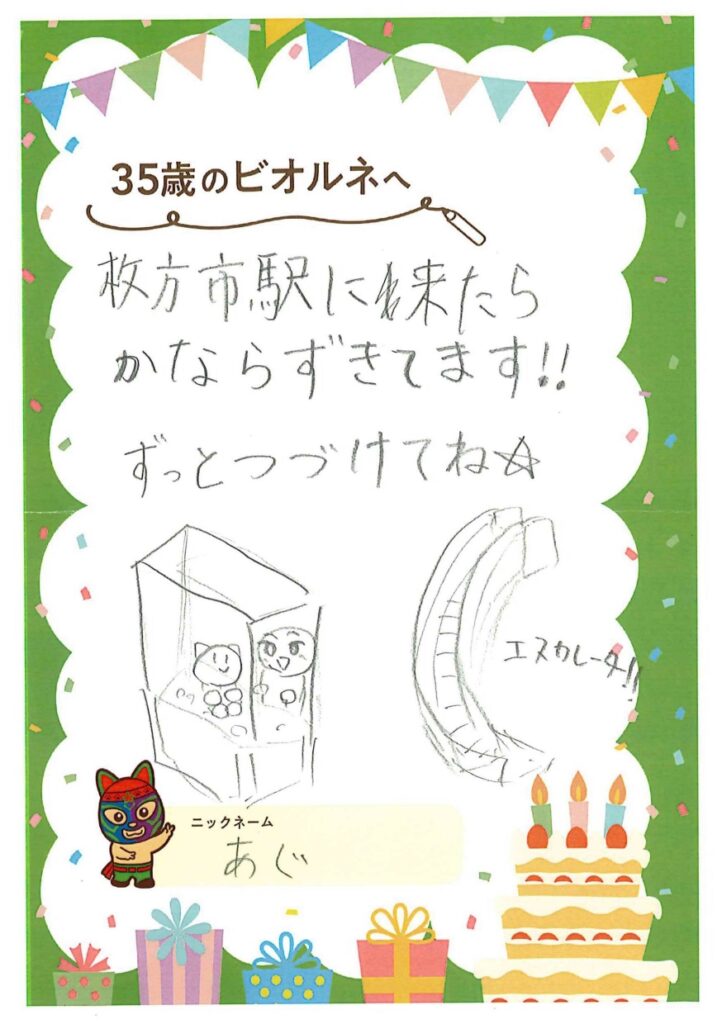 35歳のビオルネへ
枚方市駅に来たら
かならずきてます!!
ずっとつづけてね☆
エスカレーター!!
ニックネーム
あぐ